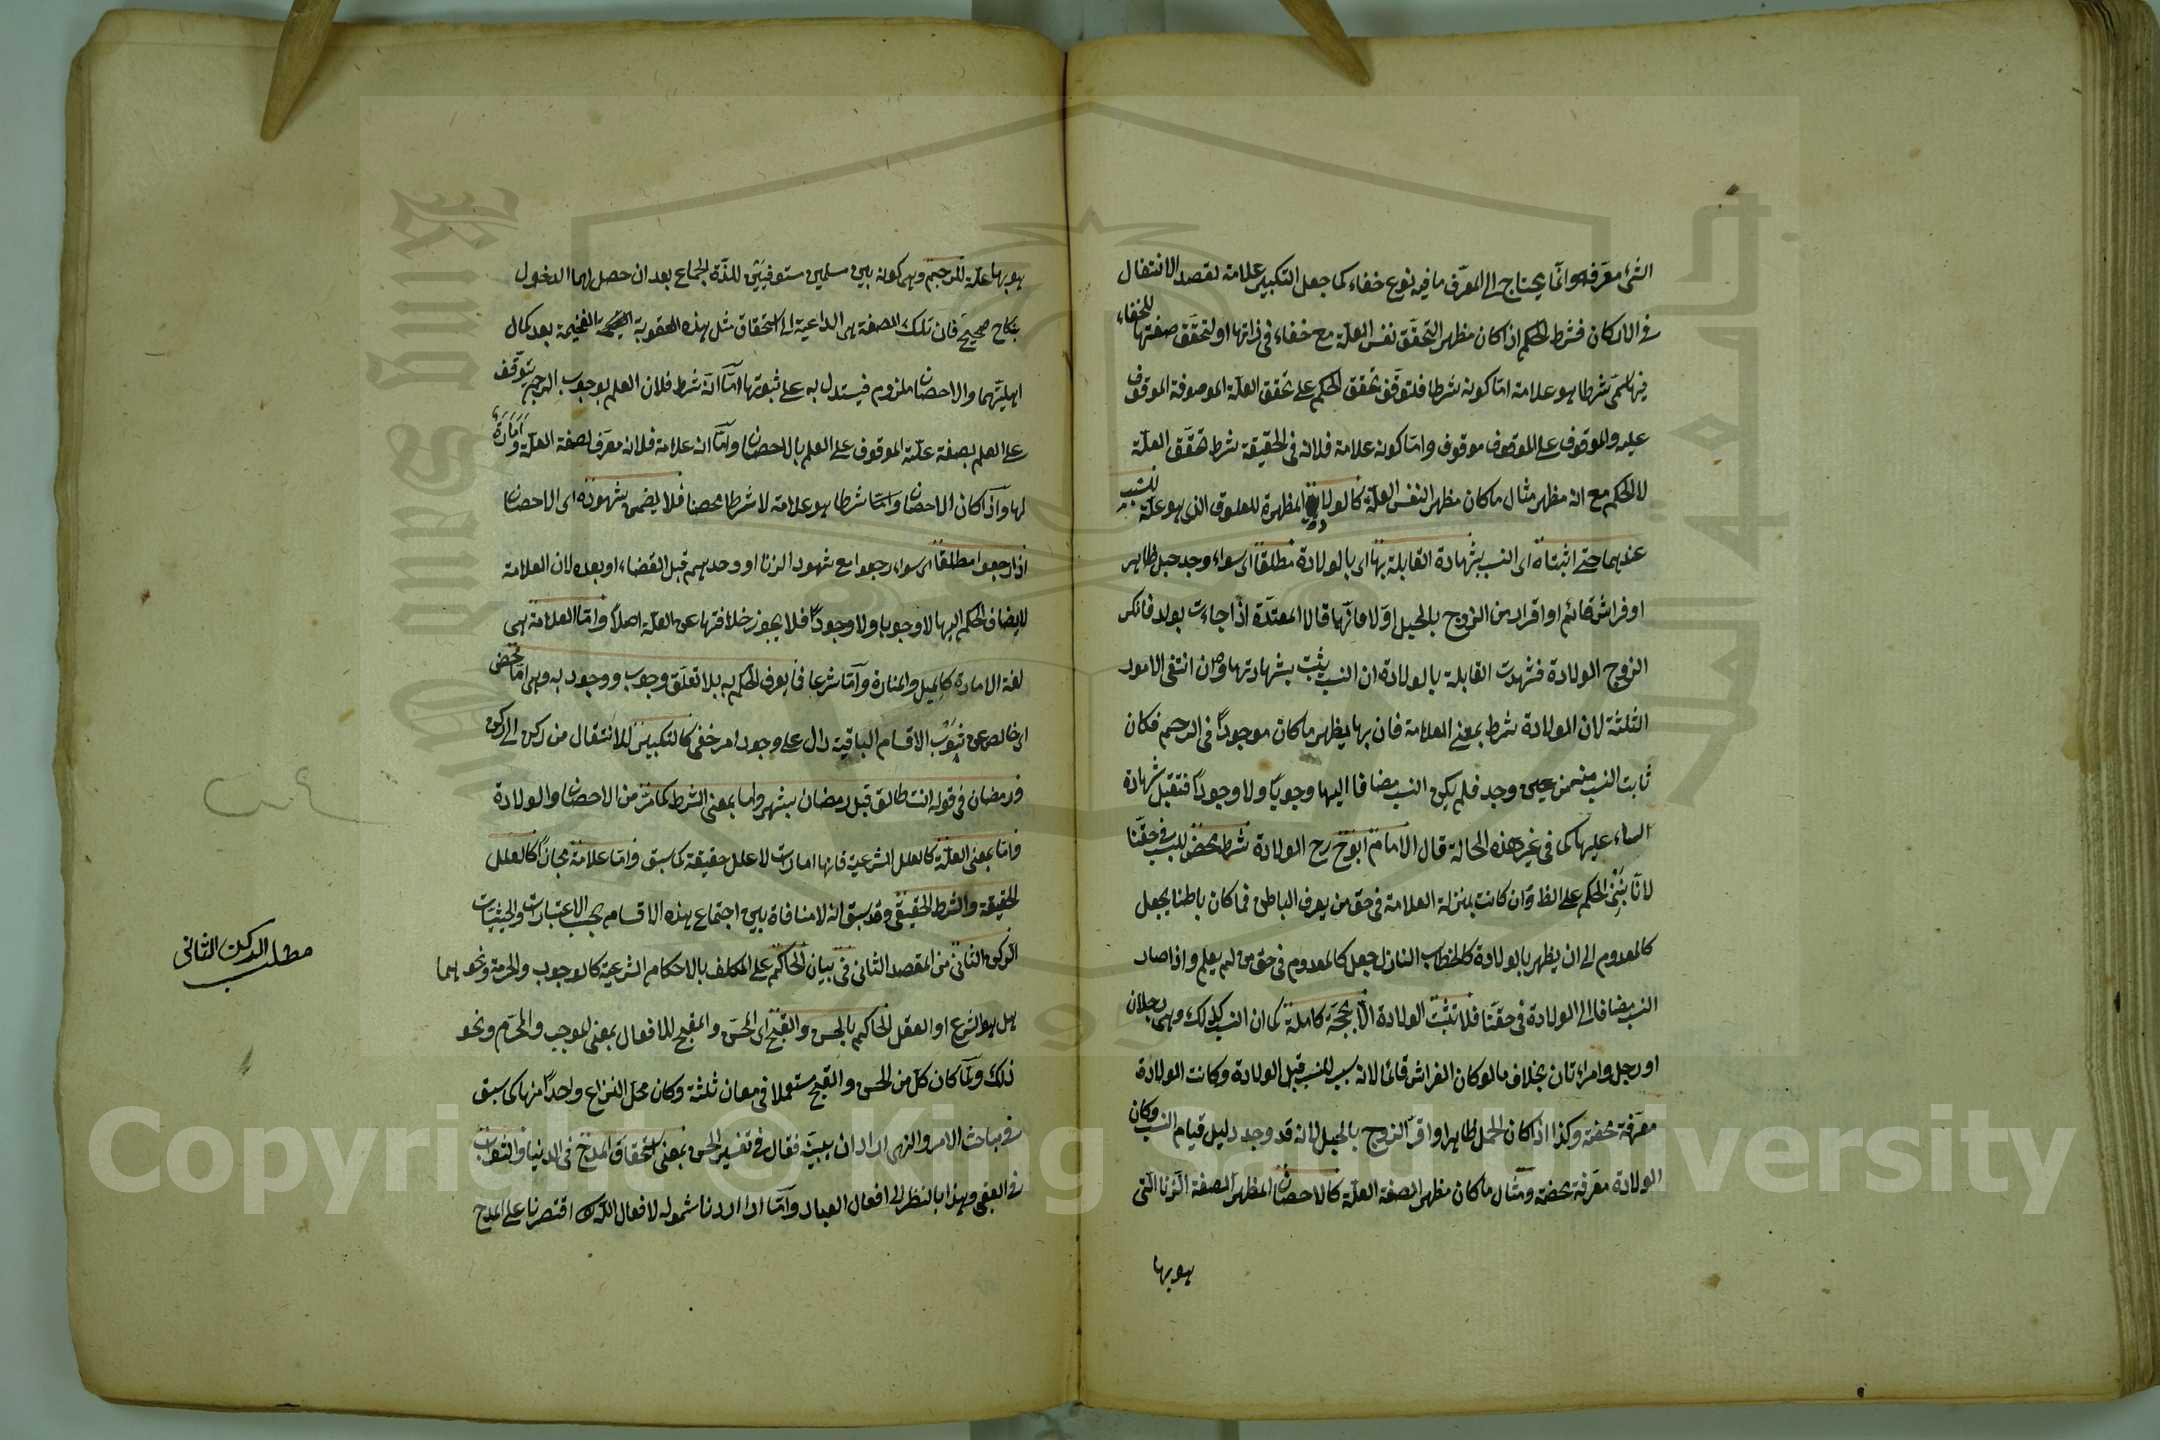 الشئ معرفه وانما يحتاج الى المعرف ما فيه نوع خفاء كما جعل التكبير علامة لقصد الانتقال
فى الاركان فشرط الحكم اذا كان مظهرا لتحقق نفس العلة مع خفاء فى ذاتها او لتحقق صفتها للخفاء
فيها يسمى شرطا هو علامة اما كونه شرطا فلتوقف تحقق الحكم على تحقق العلة الموصوفة الموقوف
عليه والموقوف على الموقوف موقوف واما كونه علامة فلانه فى الحقيقة شرط تحقق العلة
لا الحكم مع انه مظهر مثال ما كان مظهرا لنفس العلة كالولادة المظهرة للعلوق الذى هو علة للنسب
عندهما حتى اثبتاه اى النسب بشهادة القابلة بها اى بالولادة مطلقا اى سواء وجد حبل ظاهر
او فراش قائم او اقرار من الزوج بالحبل او لا فانهما قالا المعتدة اذا جاءت بولد فانكر
الزوج الولادة فشهدت القابلة بالولادة ان النسب يثبت بشهادتها وان انتفى الامور
الثلثة لان الولادة شرط بمعنى العلامة فان بها يظهر ما كان موجودا فى الرحم فكان
ثابت النسب من حين وجد فلم يكن النسب مضافا اليها وجوبا ولا وجودا فتقبل شهادة
النساء عليها كما فى غير هذه الحالة قال الامام ابو ح رح الولادة شرط محض للنسب فى حقنا
لانا نبنى الحكم على الظ وان كانت بمنزلة العلامة فى حق من يعرف الباطن فما كان باطنا يجعل
كالمعدوم الى ان يظهر بالولادة كالخطاب النازل جعل كالمعدوم فى حق من لم يعلم واذا صار
النسب مضافا الى الولادة فى حقنا فلا تثبت الولادة الا بحجة كاملة كما ان النسب كذلك وهى رجلان
او رجل وامراءتان بخلاف ما لو كان الفراش قائما لانه سبب للنسب قبل الولادة وكانت الولادة
معرفة محضة وكذا اذا كان الحمل ظاهرا او اقر الزوج بالحبل لانه قد وجد دليل قيام النسب وكان
الولادة معرفة محضة ومثال ما كان مظهرا لصفة العلة كالاحصان المظهر لصفة الزنا التى
هو بها
هو بها علة للرجم وهى كونه بين مسلمين مستوفيين للذة الجماع بعد ان حصل لهما الدخول
بنكاح صحيح فان تلك الصفة هى الداعية الى استحقاق مثل هذه العقوبة الفخيمة بعد كمال
اهليتهما والاحصان ملزوم فيستدل به على ثبوتها اما انه شرط فلان العلم بوجوب الرجم يتوقف
على العلم بصفة علته الموقوف على العلم بالاحصان واما انه علامة فلانه معرف لصفة العلة وامارة
لها واذا كان الاحصان شرطا هو علامة لا شرطا محضا فلا يضمن شهوده اى الاحصان
اذا رجعوا مطلقا اى سواء رجعوا مع شهود الزنا او وحدهم قبل القضاء او بعده لان العلامة
لا يضاف الحكم اليها لا وجوبا ولا وجودا فلا يجوز خلافتها عن العلة اصلا واما العلامة هى
لغة الامارة كالميل والمنارة واما شرعا فما يعرف الحكم به بلا تعلق وجوب ووجود به وهى اما محض
اى خالص عن شوب الاقسام الباقية دال على وجود امر خفى كالتكبير للانتقال من ركن الى ركن
ورمضان فى قوله انت طالق قبل رمضان بشهر واما بمعنى الشرط كما مر من الاحصان والولادة
واما بمعنى العلة كالعلل الشرعية فانها امارات لا علل حقيقة كما سبق واما علامة مجازا كالعلل
الحقيقة والشرط الحقيقى وقد سبق انه لا منافاة بين اجتماع هذه الاقسام بحسب الاعتبارات والحيثيات
الركن الثانى من المقصد الثانى فى بيان الحاكم على المكلف بالاحكام الشرعية كالوجوب والحرمة ونحوهما
مطلب الركن الثانى
هل هو الشرع او العقل الحاكم بالحسن والقبح اى المحسن والمقبح للافعال بمعنى الموجب والمحرم ونحو
ذلك ولما كان كل من الحسن والقبح مستعملا فى معان ثلثة وكان محل النزاع واحدا منها كما سبق
فى مباحث الامر والنهى اراد ان يبينه فقال فى تفسير الحسن بمعنى استحقاق المدح فى الدنيا والثواب
فى العقبى وهذا بالنظر الى افعال العباد واما اذا اردنا شموله لافعال الله تع اقتصرنا على المدح
Copyright © King Saud University